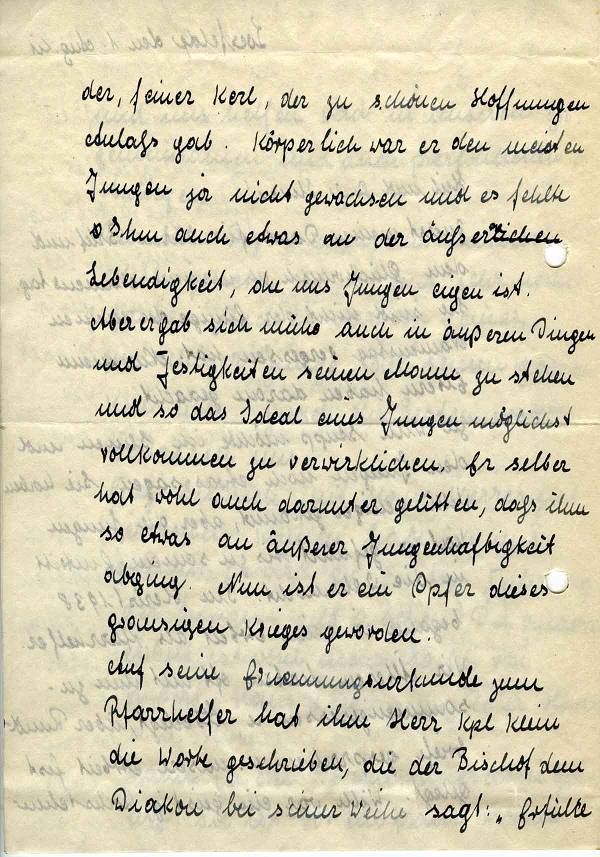 der, feiner Kerl, der zu schönen Hoffnungen
Anlaß gab. Körperlich war er den meisten
Jungen ja nicht gewachsen und es fehlte
Ihm auch etwas an der äußerlichen
Lebendigkeit, die uns Jungen eigen ist.
Aber er gab sich mühe auch in äußeren Dingen
und Festigkeiten seinen Mann zu stehen
und so das Ideal eines Jungen möglichst
vollkommen zu verwirklichen. Er selber
hat wohl auch darunter gelitten, daß ihm
so etwas an äußerer Jungenhaftigkeit
abging. Nun ist er ein Opfer dieses
grausigen Krieges geworden.
Auf seine Ernennungsurkunde zum
Pfarrhelfer hat ihm Herr Kpl Klein
die Worte geschrieben, die der Bischof dem
Diakon bei seiner Weihe sagt: „Erfülle